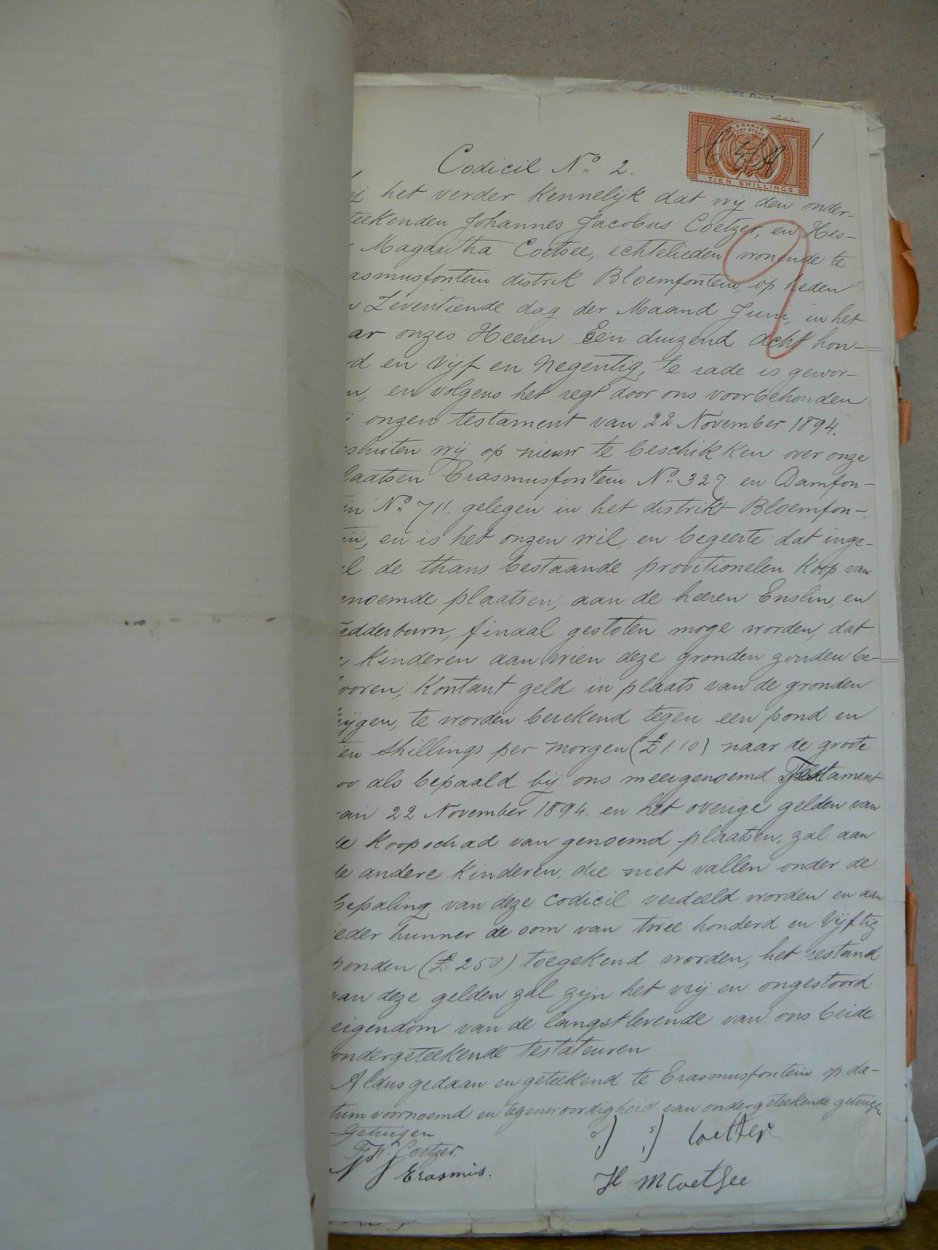 Codicil No. 2.
het verder kennelijk dat wij den onder-
teekenden Johannes Jacobus Coetzer, en Hes-
Magaritha Coetsee, echtelieden wonende te
asmusfontein distrik Bloemfontein op heden
Zeventiende dag der Maand Juni, in het
ar onzes Heeren Een duizend acht hon-
d en vijf en Negentig, te rade is gewor-
n, en volgens het regt door ons voorbehouden
onzen testament van 22 November 1894.
sluiten wij op nieuw te beschikken over onze
laatsen Erasmusfontein No. 327 en Damfon-
in No. 711. gelegen in het distrikt Bloemfon-
in, en is het onzen wil, en begeerte dat inge-
l de thans bestaande provitionelen Koop van
noemde plaatsen, aan de heeren Enslin, en
edderburn, finaal gesloten moge worden, dat
Kinderen aan wien deze gronden zouden be-
ooren, Kontant geld in plaats van de gronden
ijgen, te worden berekend tegen een pond en
en shillings per morgen (£1.10) naar de groote
oo als bepaald bij ons meergenoemd Testament
an 22 November 1894. en het overige gelden van
de Koopschad van genoemd plaatsen, zal aan
de andere Kinderen, die niet vallen onder de
bepaling van deze codicil verdeeld worden en aan
ieder hunner de som van twee honderd en Vijftig
ponden (£250) toegekend worden, het restand
van deze gelden zal zijn het vrij en ongestoord
eigendom van de langstlevende van ons beide
ondergeteekende testateuren
Aldus gedaan en geteekend te Erasmusfontein op da-
tum voornoemd en tegenwoordigheid van ondergeteekende getuigen
Getuigen
Coetzer
Erasmus.
J J Coetzer
H M Coetsee
ORANJE
TIEN SHILLINGS